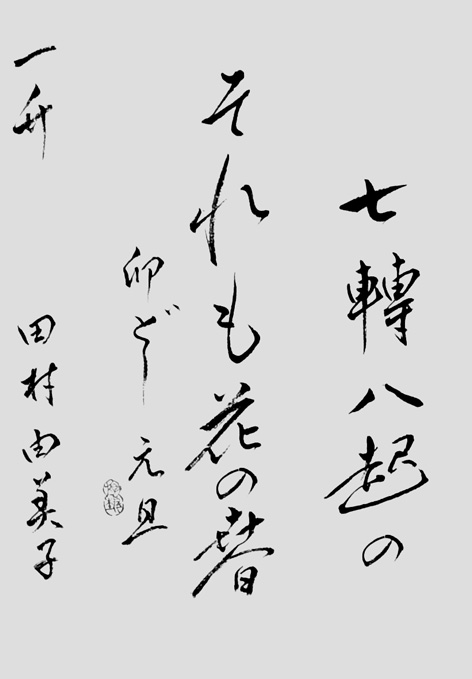 七轉八起の
それも花の春
卯どし 元旦
一舛
田村由美子